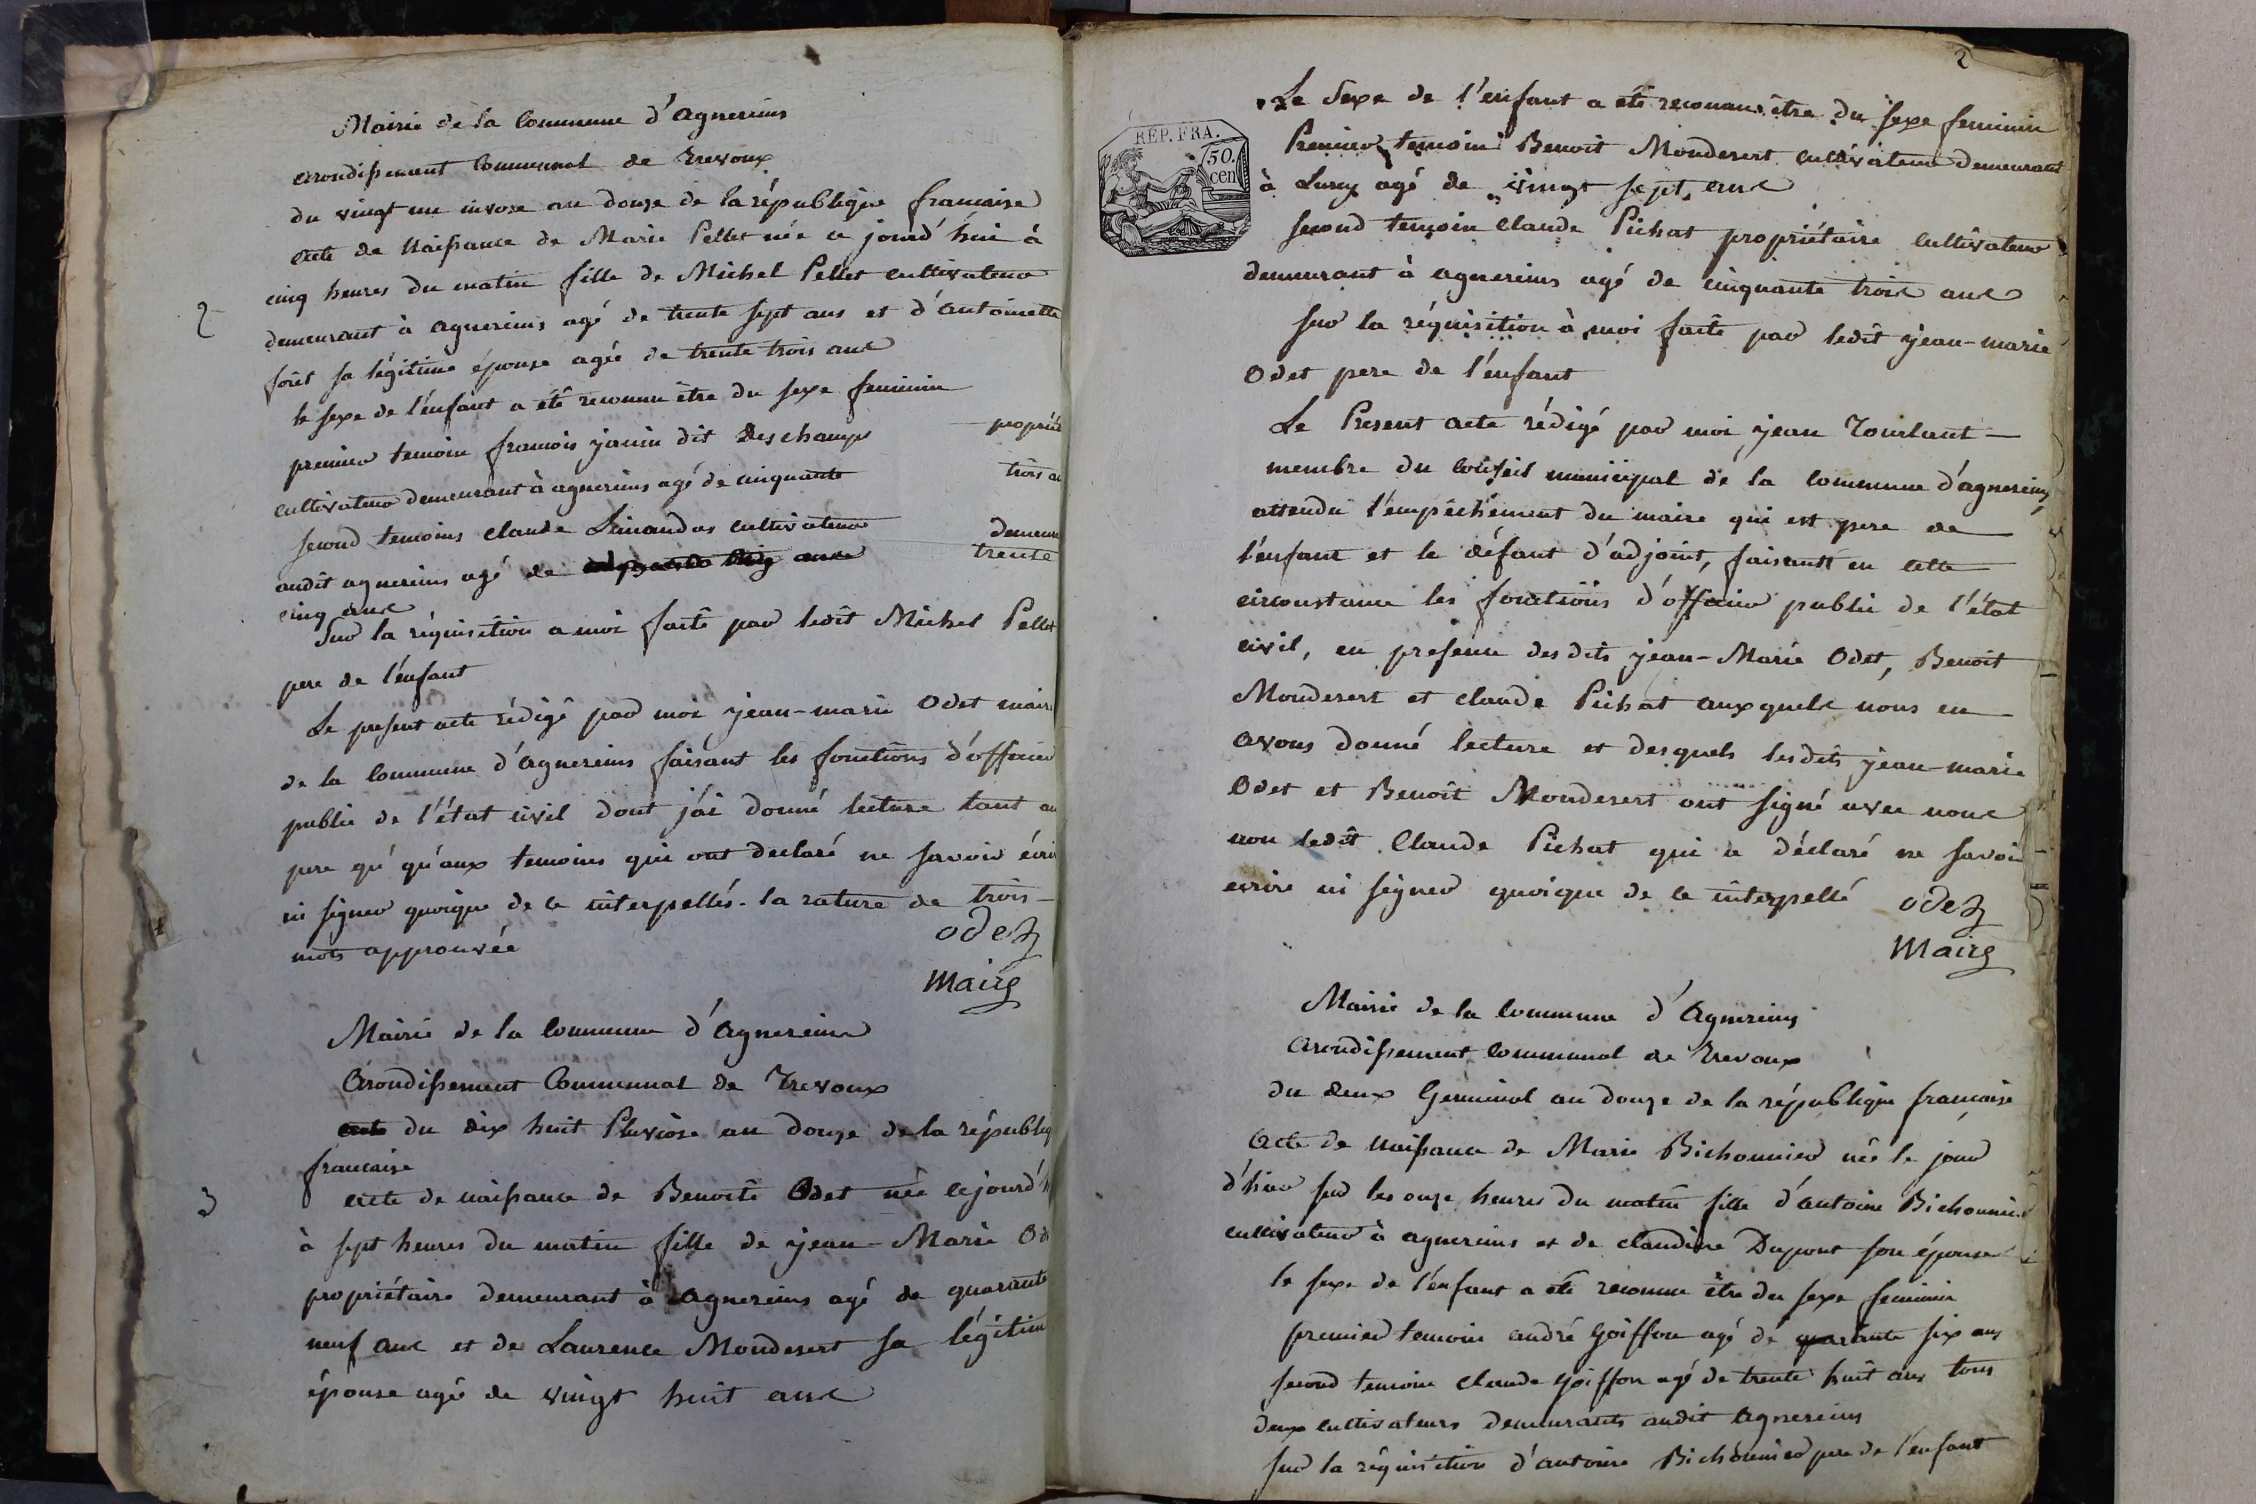 Mairie de la Commune d'Agnereins
arondissement Communal de Trevoux
du vingt un nivose an douze de la république francaise
acte de Naissance de Marie Pellet née ce jourd'hui à
cinq heures du matin fille de Michel Pellet cultivateur
2
demeurant à agnereins agé de trente sept ans et d'antoinette
forêt sa légitime épouse agée de trente trois ans
le sexe de l'énfant a été reconnu être du sexe feminin
premier temoin francois janin dit Deschamps proprié
cultivateur demeurant à agnereins agé de cinquante trois an
second temoins claude Limandas cultivateur demeur
audit agnereins agé de trente
cinq ans
Sur la réquisition a moi faite par ledit Michel Pellet
pere de l'énfant
Le present acte rédigé par moi jean-marie Odet maire
de la Commune d'Agnereins faisant les fonctions d'officier
public de l'état civil dont j'ai donné lecture tant au
pere qu' qu'aux temoins qui ont declaré ne savoir écri
ni signer quoique de ce interpellés. la rature de trois
mots approuvée
odet
maire
Mairie de la Commune d'Agnereins
Arondissement Communal de Trevoux
acte du dix huit Pluviose an douze de la républiq
francaise
3
acte de naissance de Benoite Odet née cejourd'h
à sept heures du matin fille de jean-Marie Od
propriétaire demeurant à Agnereins agé de quarante
neuf ans et de Laurence Mondesert sa légitim
épouse agée de vingt huit ans
2
RÉP. FRA.
50.
cen
Le Sexe de l'enfant a été reconnu être du sexe feminin
Premier temoin Benoit Mondesert cultivateur demeurant
à Lurcy agé de vingt sept ans
second temoin claude Pichat propriétaire cultivateur
demeurant à agnereins agé de cinquante trois ans
sur la réquisition à moi faite par ledit jean-marie
Odet pere de l'énfant
Le Present acte rédigé par moi jean Tourlant
membre du conseil municipal de la commune d'agnereins,
attendu l'empêchement du maire qui est pere de
l'énfant et le défaut d'adjoint, faisant en cette
circonstance les fonctions d'officier public de l'état
civil, en presence desdits jean-Marie Odet, Benoit
Mondesert et claude Pichat auxquels nous en
avons donné lecture et desquels lesdits jean-marie
Odet et Benoit Mondesert ont signé avec nous
non ledit Claude Pichat qui a déclaré ne savoir
ecrire ni signer quoique de ce interpellé
odet
maire
Mairie de la commune d'Agnereins
arondissement communal de Trevoux
du deux Germinal an douze de la république francaise
Acte de naissance de Marie Bichonnier née le jour
d'hier sur les onze heures du matin fille d'antoine Bichonnier
cultivateur à agnereins et de claudine Dupont son épouse
le sexe de l'énfant a été reconnu être du sexe feminin
premier temoin andré goiffon agé de quarante six ans
second temoin claude goiffon agé de trente huit ans tous
deux cultivateurs demeurants audit Agnereins
sur la réquisition d'antoine Bichonnier pere de l'énfant